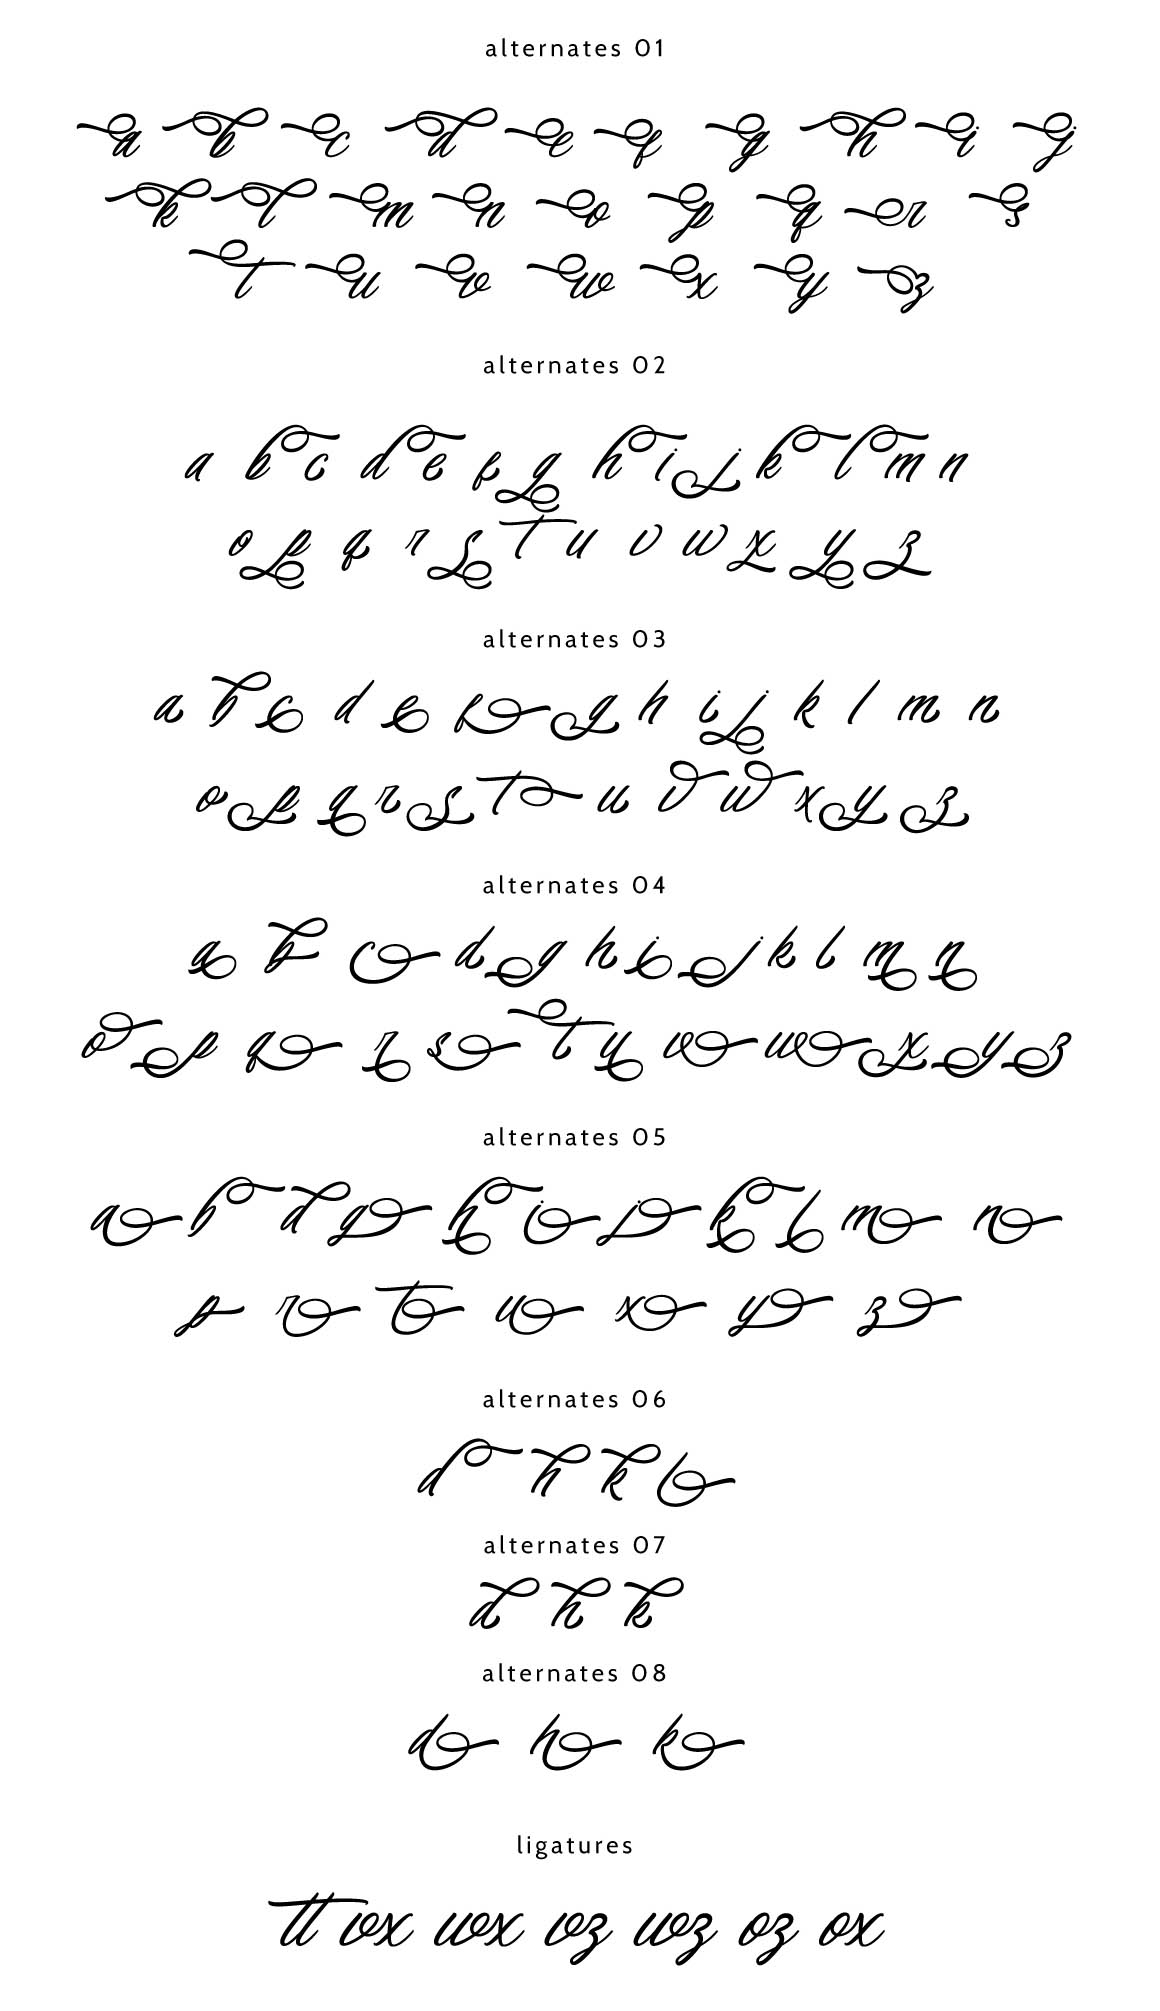 alternates 01
a b c d e f g h i j
k l m n o p q r s
t u v w x y z
alternates 02
a b c d e f g h i j k l m n
o p q r s t u v w x y z
alternates 03
a b c d e f g h i j k l m n
o p q r s t u v w x y z
alternates 04
a b c d g h i j k l m n
o p q r s t u v w x y z
alternates 05
a b d g h i j k l m n
p r t u x y z
alternates 06
d h k l
alternates 07
d h k
alternates 08
d h k
ligatures
tt vx wx vz wz oz ox